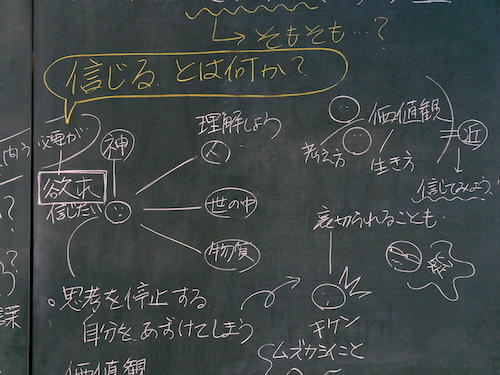 そもそも…?
信じる とは何か?
理解しよう
価値観
神
人
考え方
生き方
近
欲求
信じたい
信じてみよう
世の中
裏切られることも
物質
。思考を停止する
自分を、あずけてしまう
キケン
ムズカシイこと
価値観